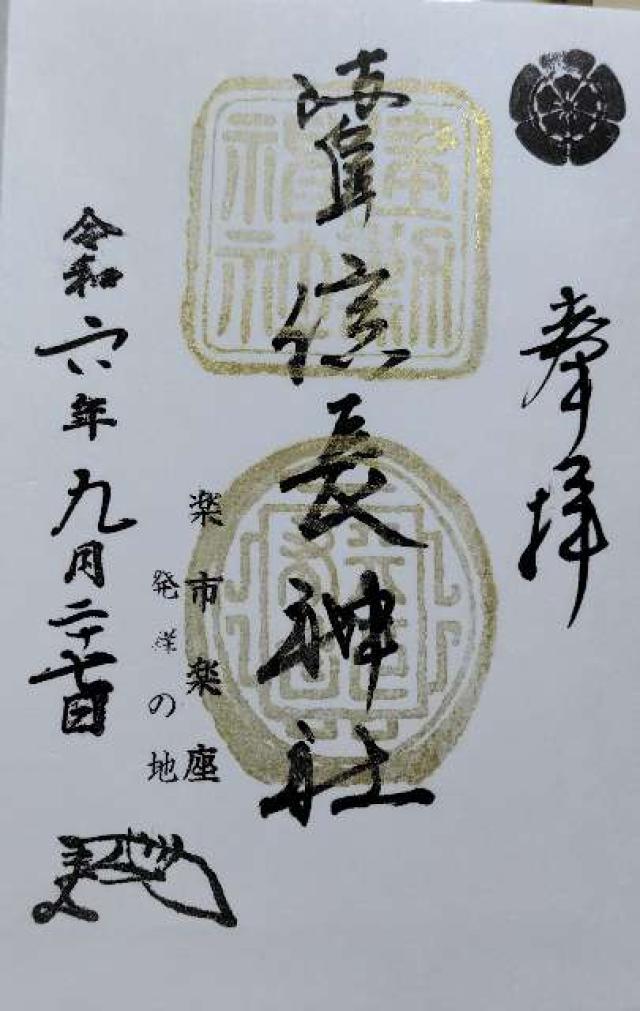 奉拝
岐阜信長神社
楽市楽座
発祥の地
令和六年九月二十七日